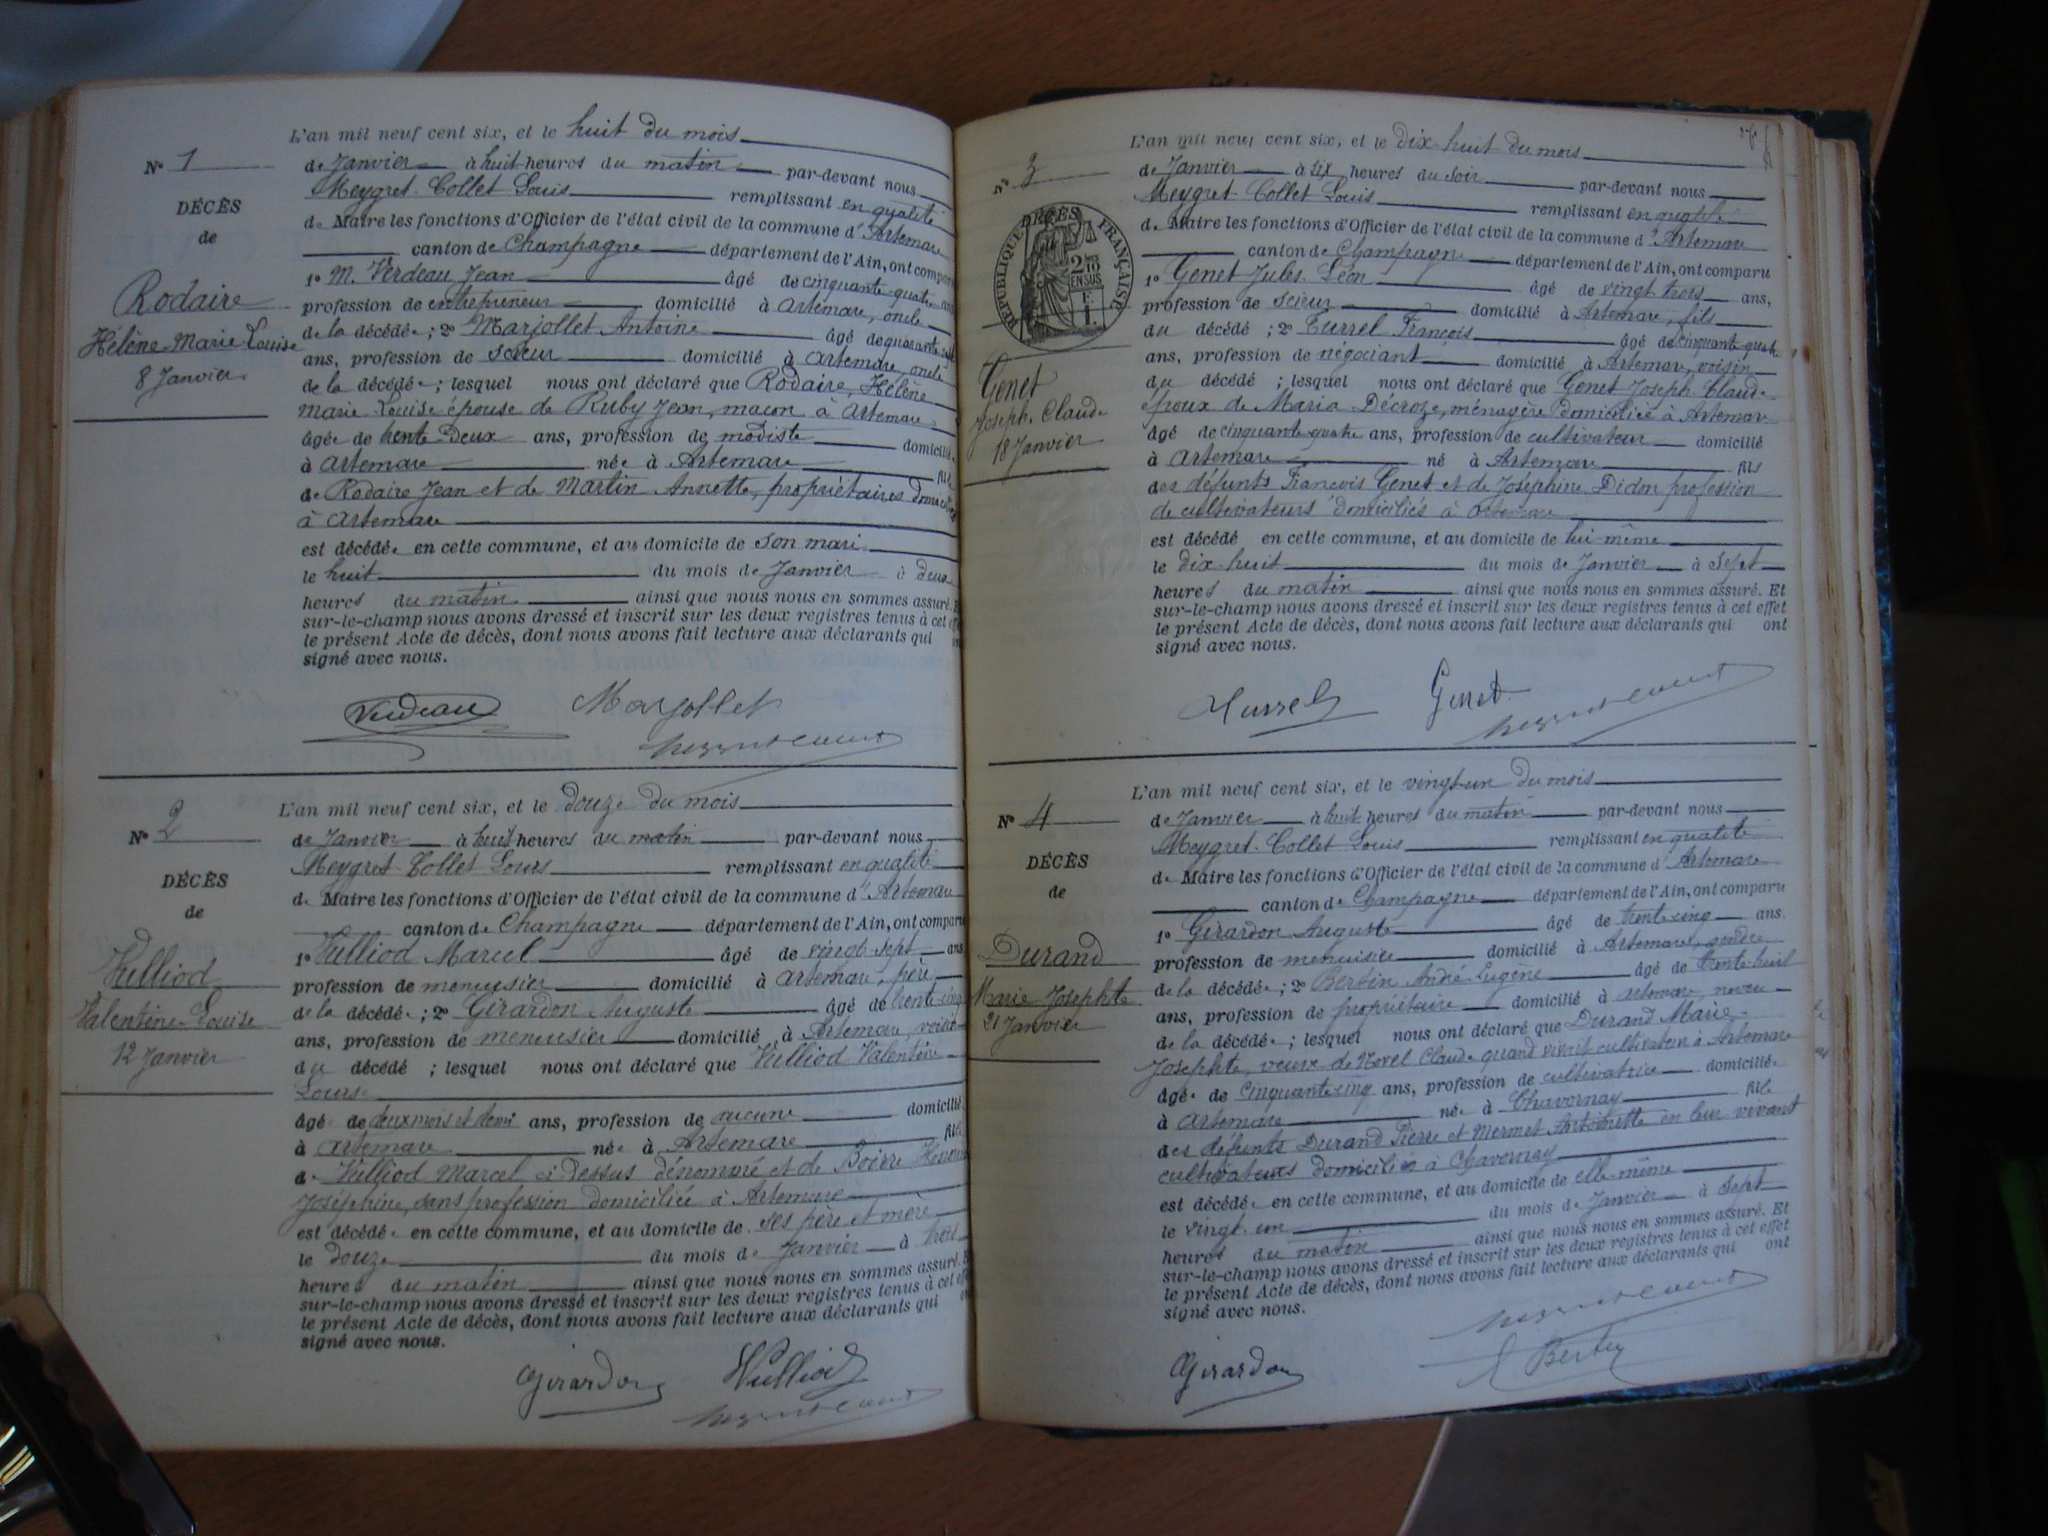 L'an mil neuf cent six, et le huit du mois
N° 1
de Janvier à huit heures du matin par-devant nous
Meygret-Collet Louis remplissant en qualité
DÉCÈS
de Maire les fonctions d'Officier de l'état civil de la commune d'Artemare
de
canton de Champagne département de l'Ain, ont comparu
1° M. Verdeau Jean âgé de cinquante-quatre ans
Rodaire
profession de entrepreneur domicilié à Artemare, oncle
Hélène-Marie-Louise
de la décédée ; 2° Marjollet Antoine âgé de quarante
ans, profession de scieur domicilié à Artemare, oncle
8 Janvier
de la décédée ; lesquel nous ont déclaré que Rodaire, Hélène
Marie Louise épouse de Ruby Jean, maçon à Artemare
âgée de trente-deux ans, profession de modiste domicilié
à Artemare née à Artemare fil
de Rodaire Jean et de Martin Annette, propriétaires
à Artemare
est décédée en cette commune, et au domicile de son mari
le huit du mois de Janvier à deux
heures du matin ainsi que nous nous en sommes assuré. Et
sur-le-champ nous avons dressé et inscrit sur les deux registres tenus à cet effet
le présent Acte de décès, dont nous avons fait lecture aux déclarants qui
signé avec nous.
Verdeau Marjollet
L'an mil neuf cent six, et le douze du mois
N° 2
de Janvier à huit heures du matin par-devant nous
Meygret-Collet Louis remplissant en qualité
DÉCÈS
de Maire les fonctions d'Officier de l'état civil de la commune d'Artemare
de
canton de Champagne département de l'Ain, ont comparu
1° Vulliod Marcel âgé de vingt-sept ans
Vulliod
profession de menuisier domicilié à Artemare, père
de la décédée ; 2° Girardon Auguste âgé de trente-cinq
Valentine-Louise
ans, profession de menuisier domicilié à Artemare, voisin
12 Janvier
du décédé ; lesquel nous ont déclaré que Vulliod Valentine
Louise
âgé de deux mois et demi ans, profession de aucune domicilié
à Artemare née à Artemare fil
de Vulliod Marcel ci-dessus dénommé et de
Joséphine, sans profession domiciliée à Artemare
est décédée en cette commune, et au domicile de ses père et mère
le douze du mois de Janvier à trois
heures du matin ainsi que nous nous en sommes assuré. Et
sur-le-champ nous avons dressé et inscrit sur les deux registres tenus à cet effet
le présent Acte de décès, dont nous avons fait lecture aux déclarants qui
signé avec nous.
Girardon Vulliod
L'an mil neuf cent six, et le dix-huit du mois
N° 3
de Janvier à six heures du soir par-devant nous
Meygret-Collet Louis remplissant en qualité
DÉCÈS
de Maire les fonctions d'Officier de l'état civil de la commune d'Artemare
RÉPUBLIQUE FRANÇAISE
2/10 EN SUS
canton de Champagne département de l'Ain, ont comparu
1° Genet Jules-Léon âgé de vingt-trois ans,
profession de scieur domicilié à Artemare, fils
du décédé ; 2° Turrel François âgé de cinquante-quatre
ans, profession de négociant domicilié à Artemare, voisin
Genet
du décédé ; lesquel nous ont déclaré que Genet Joseph Claude
Joseph-Claude
époux de Maria Décroze, ménagère domiciliée à Artemare
18 Janvier
âgé de cinquante-quatre ans, profession de cultivateur domicilié
à Artemare né à Artemare fils
des défunts François Genet et de Joséphine Didon profession
de cultivateurs domiciliés à Artemare
est décédé en cette commune, et au domicile de lui-même
le dix-huit du mois de Janvier à sept
heures du matin ainsi que nous nous en sommes assuré. Et
sur-le-champ nous avons dressé et inscrit sur les deux registres tenus à cet effet
le présent Acte de décès, dont nous avons fait lecture aux déclarants qui ont
signé avec nous.
Turrel Genet
L'an mil neuf cent six, et le vingt-un du mois
N° 4
de Janvier à huit heures du matin par-devant nous
Meygret-Collet Louis remplissant en qualité
DÉCÈS
de Maire les fonctions d'Officier de l'état civil de la commune d'Artemare
de
canton de Champagne département de l'Ain, ont comparu
1° Girardon Auguste âgé de trente-cinq ans.
Durand
profession de menuisier domicilié à Artemare, gendre
de la décédée ; 2° Bertin André-Eugène âgé de trente-huit
Marie-Josephte
ans, profession de propriétaire domicilié à Artemare, neveu
21 Janvier
de la décédée ; lesquel nous ont déclaré que Durand Marie
Josephte, veuve de Morel Claude quand vivait cultivateur à Artemare
âgée de cinquante-cinq ans, profession de cultivatrice domiciliée
à Artemare née à Chavornay fil
des défunts Durand Pierre et Mermet Antoinette en leur vivant
cultivateurs domiciliés à Chavornay
est décédée en cette commune, et au domicile de elle-même
le vingt-un du mois de Janvier à sept
heures du matin ainsi que nous nous en sommes assuré. Et
sur-le-champ nous avons dressé et inscrit sur les deux registres tenus à cet effet
le présent Acte de décès, dont nous avons fait lecture aux déclarants qui ont
signé avec nous.
Girardon Bertin